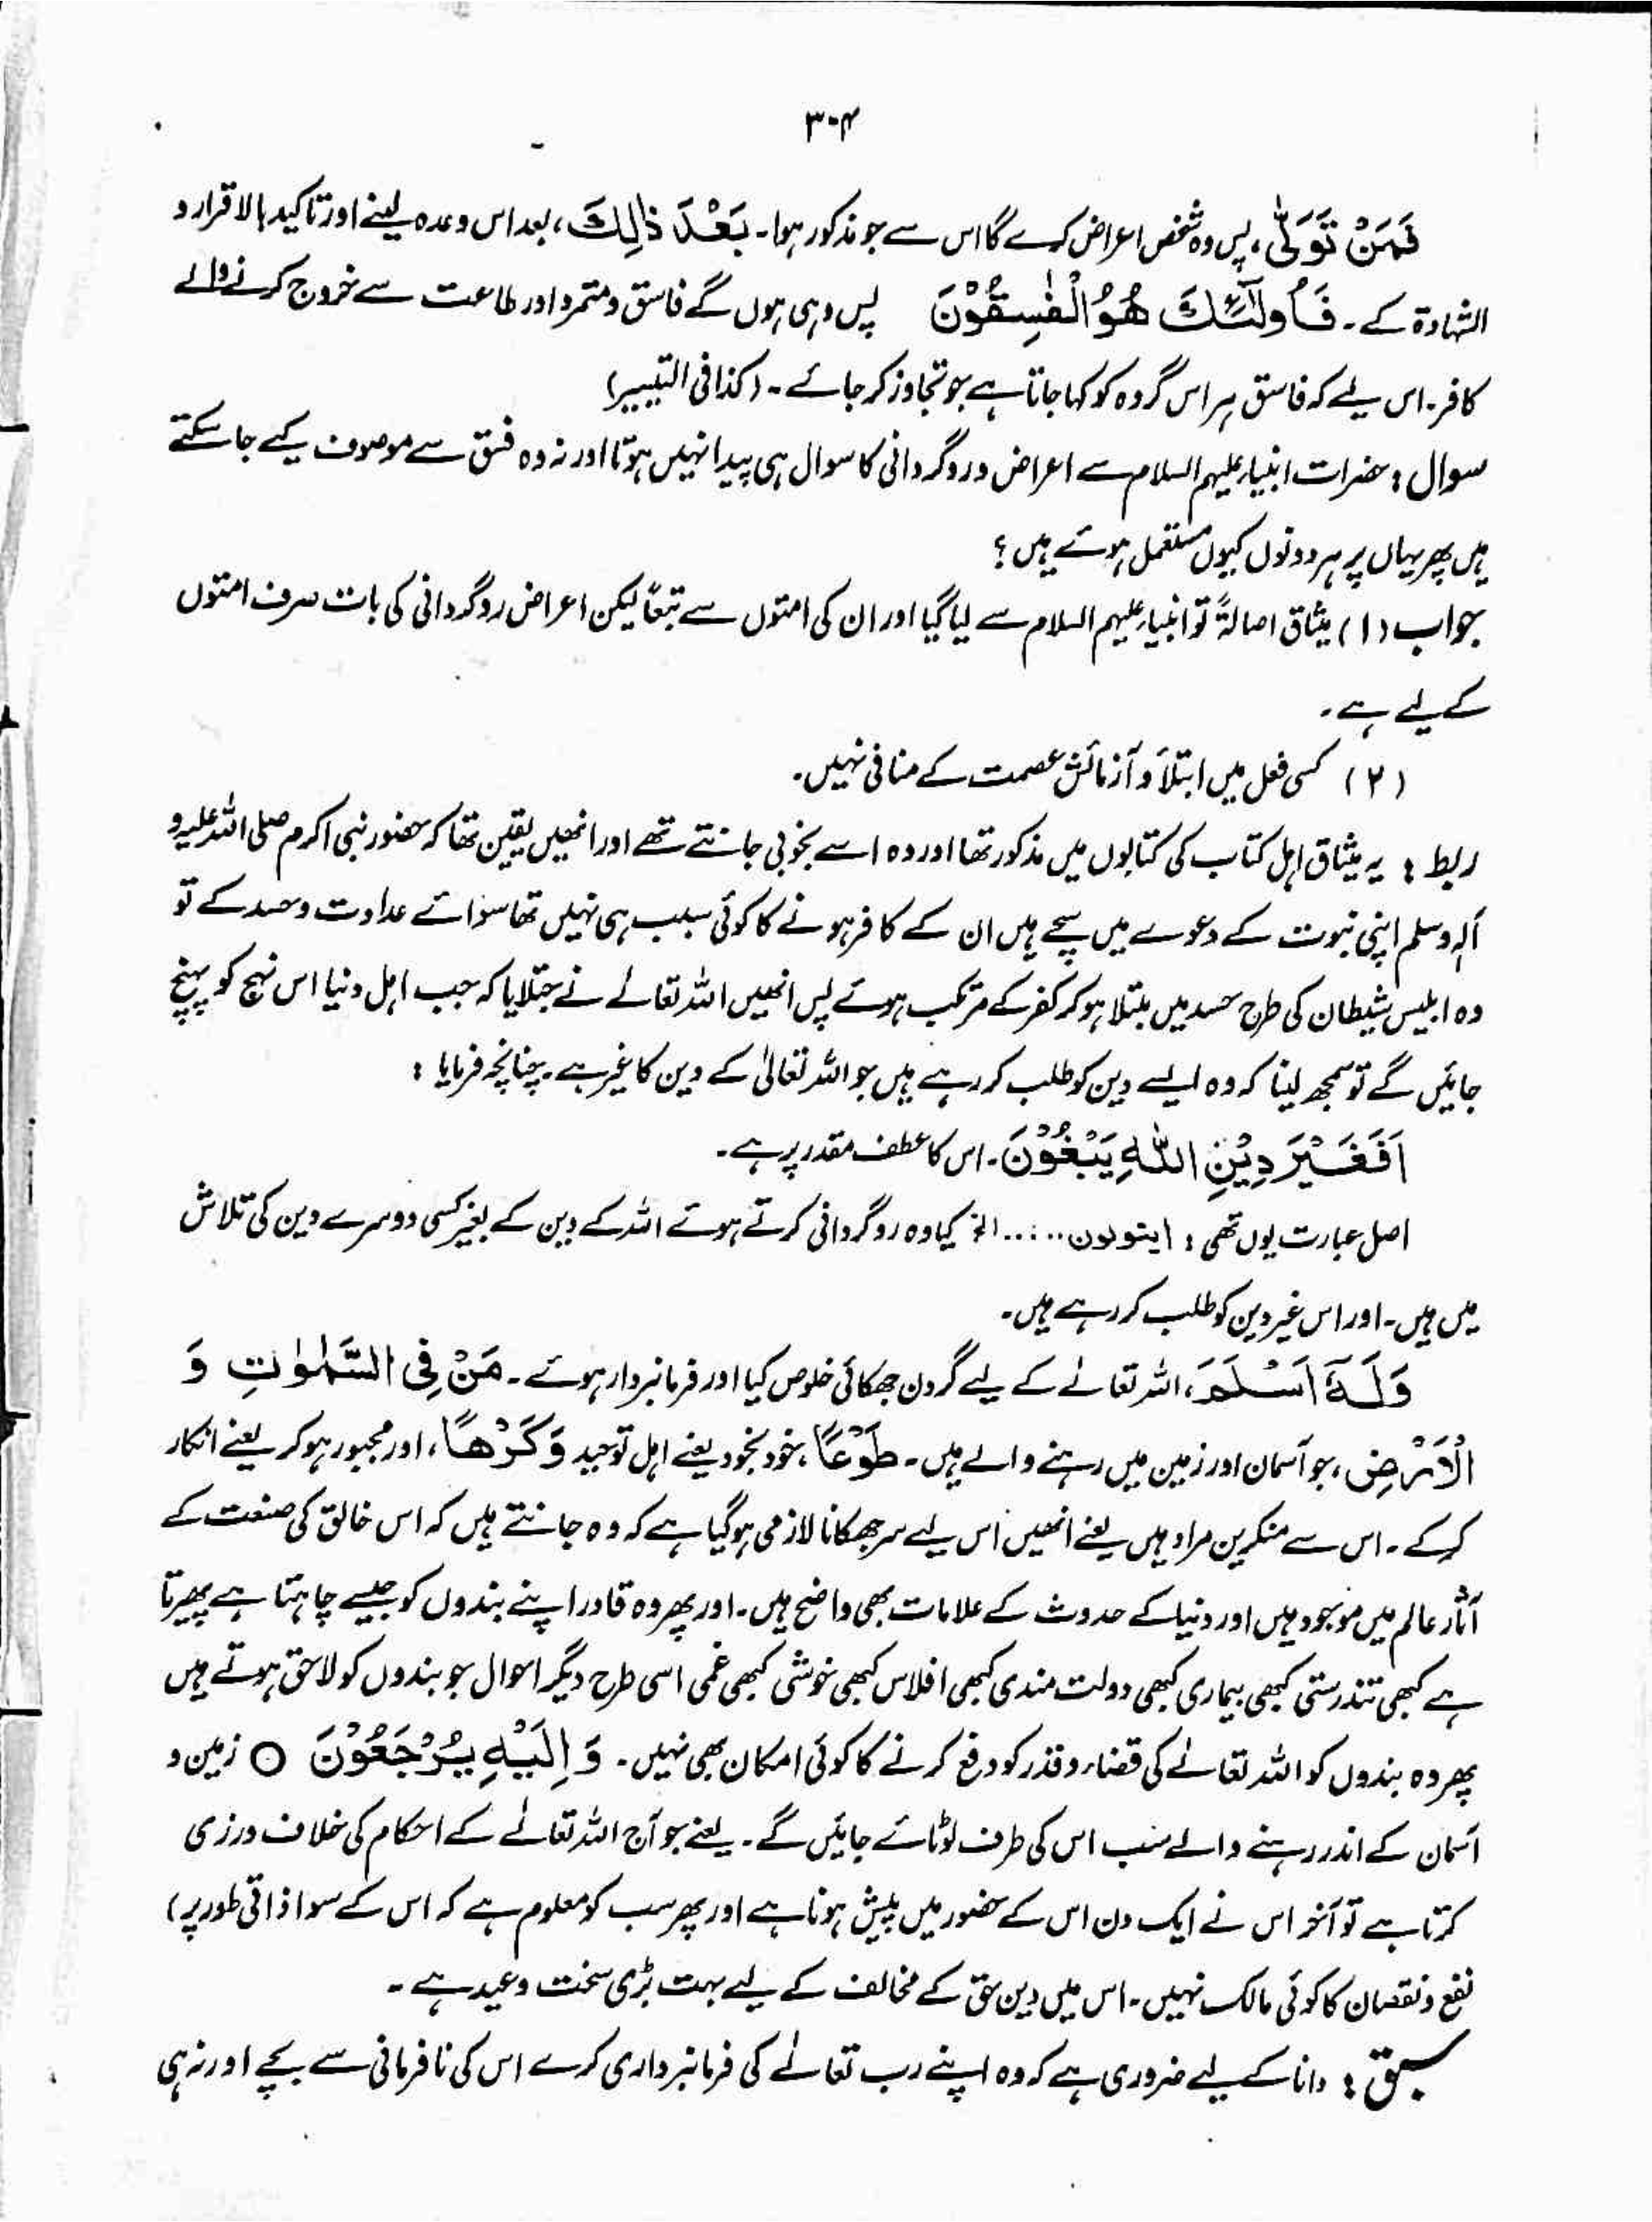 ۳۰۴
فَمَنْ تَوَلّٰى، پس وہ شخص اعراض کرے گا اس سے جو مذکور ہوا۔ بَعْدَ ذٰلِكَ، بعد اس وعدہ لینے اور تاکید بالاقرار و
الشہادۃ کے۔ فَاُولٰٓئِكَ هُمُ الْفٰسِقُوْنَ پس وہی ہوں گے فاسق و متمرد اور طاعت سے خروج کرنے والے
کافر۔ اس لیے کہ فاسق ہر اس گروہ کو کہا جاتا ہے جو تجاوز کر جائے۔ (کذا فی التیسیر)
سوال : حضرات انبیاء علیہم السلام سے اعراض و روگردانی کا سوال ہی پیدا نہیں ہوتا اور نہ وہ فسق سے موصوف کیے جا سکتے
ہیں پھر یہاں پر ہر دونوں کیوں مستعمل ہوئے ہیں ؟
جواب (۱) میثاق اصالۃً تو انبیاء علیہم السلام سے لیا گیا اور ان کی امتوں سے تبعاً لیکن اعراض روگردانی کی بات صرف امتوں
کے لیے ہے۔
(۲) کسی فعل میں ابتلاَ و آزمائش عصمت کے منافی نہیں۔
ربط : یہ میثاق اہل کتاب کی کتابوں میں مذکور تھا اور وہ اسے بخوبی جانتے تھے اور انھیں یقین تھا کہ حضور نبی اکرم صلی اللہ علیہ و
آلہٖ وسلم اپنی نبوت کے دعوے میں سچے ہیں ان کے کافر ہونے کا کوئی سبب ہی نہیں تھا سوائے عداوت و حسد کے تو
وہ ابلیس شیطان کی طرح حسد میں مبتلا ہو کر کفر کے مرتکب ہوئے پس انھیں اللہ تعالےٰ نے جتلایا کہ جب اہل دنیا اس نہج کو پہنچ
جائیں گے تو سمجھ لینا کہ وہ ایسے دین کو طلب کر رہے ہیں جو اللہ تعالیٰ کے دین کا غیر ہے۔ چنانچہ فرمایا :
اَفَغَيْرَ دِيْنِ اللّٰهِ يَبْغُوْنَ۔ اس کا عطف مقدر پر ہے۔
اصل عبارت یوں تھی : ایتولون ..... الخ کیا وہ روگردانی کرتے ہوئے اللہ کے دین کے بغیر کسی دوسرے دین کی تلاش
میں ہیں۔ اور اس غیر دین کو طلب کر رہے ہیں۔
وَلَهٗٓ اَسْلَمَ، اللہ تعالےٰ کے لیے گردن جھکائی خلوص کیا اور فرمانبردار ہوئے۔ مَنْ فِی السَّمٰوٰتِ وَ
الْاَرْضِ، جو آسمان اور زمین میں رہنے والے ہیں۔ طَوْعًا، خود بخود یعنے اہل توحید وَكَرْهًا، اور مجبور ہو کر یعنے انکار
کر کے۔ اس سے منکرین مراد ہیں یعنے انھیں اس لیے سر جھکانا لازمی ہو گیا ہے کہ وہ جانتے ہیں کہ اس خالق کی صنعت کے
آثار عالم میں موجود ہیں اور دنیا کے حدوث کے علامات بھی واضح ہیں۔ اور پھر وہ قادر اپنے بندوں کو جیسے چاہتا ہے پھیرتا
ہے کبھی تندرستی کبھی بیماری کبھی دولت مندی کبھی افلاس کبھی خوشی کبھی غمی اسی طرح دیگر احوال جو بندوں کو لاحق ہوتے ہیں
پھر وہ بندوں کو اللہ تعالےٰ کی قضاء و قدر کو دفع کرنے کا کوئی امکان بھی نہیں۔ وَاِلَيْهِ يُرْجَعُوْنَ ○ زمین و
آسمان کے اندر رہنے والے سب اس کی طرف لوٹائے جائیں گے۔ یعنے جو آج اللہ تعالےٰ کے احکام کی خلاف ورزی
کرتا ہے تو آخر اس نے ایک دن اس کے حضور میں پیش ہونا ہے اور پھر سب کو معلوم ہے کہ اس کے سوا ذاتی طور پر)
نفع و نقصان کا کوئی مالک نہیں۔ اس میں دین حق کے مخالف کے لیے بہت بڑی سخت وعید ہے۔
سبق : دانا کے لیے ضروری ہے کہ وہ اپنے رب تعالےٰ کی فرمانبرداری کرے اس کی نافرمانی سے بچے اور نہ ہی